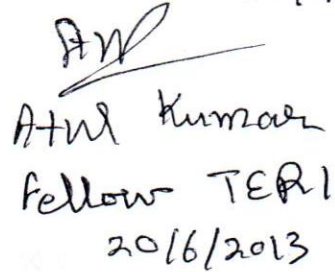 Atul Kumar
Fellow TERI
20/6/2013